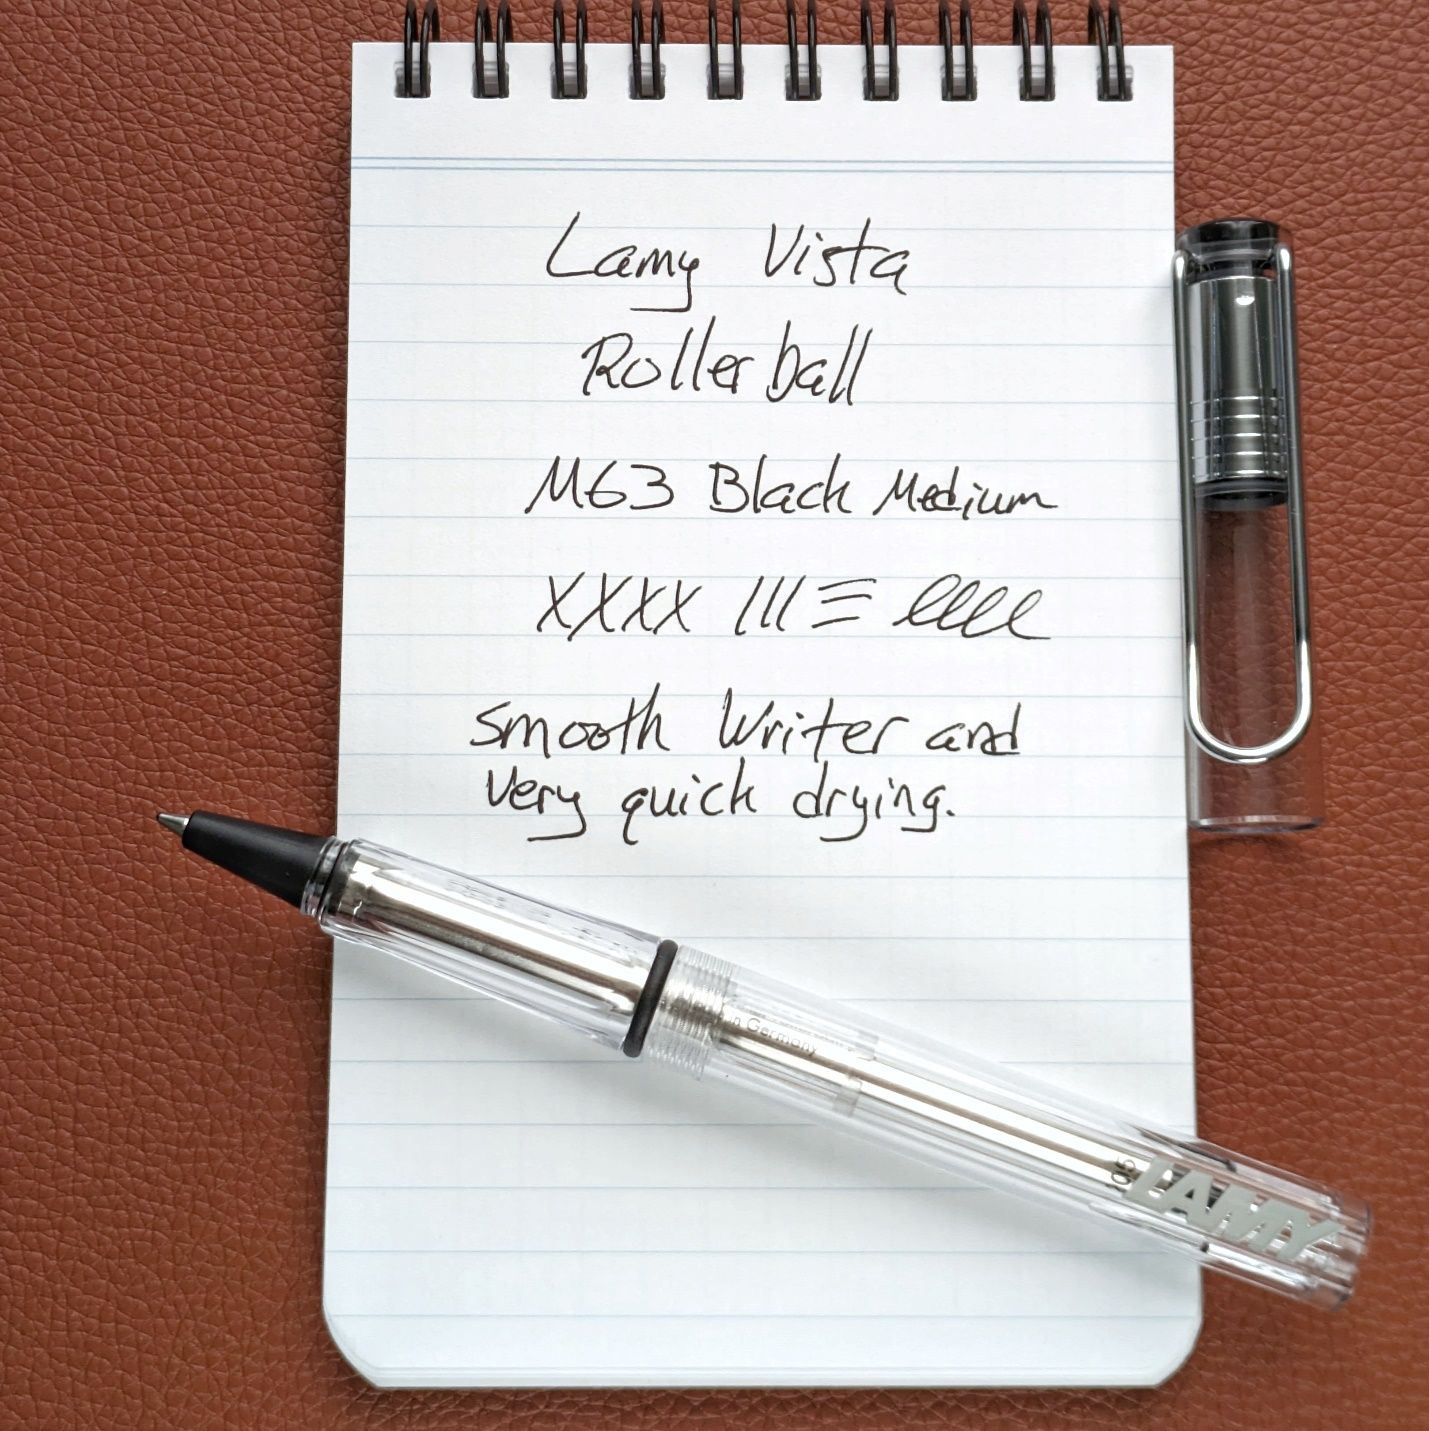 Lamy Vista
Rollerball
M63 Black Medium
XXXX III ☰ llll
Smooth Writer and
very quick drying.
in Germany
LAMY